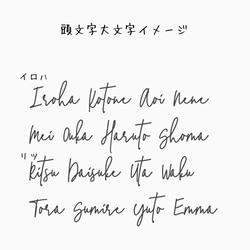 頭文字大文字イメージ
イロハ
Iroha Kotone Aoi Nene
Mei Ouka Haruto Shoma
リツ
Ritsu Daisuke Uta Waku
Tora Sumire Yuto Emma